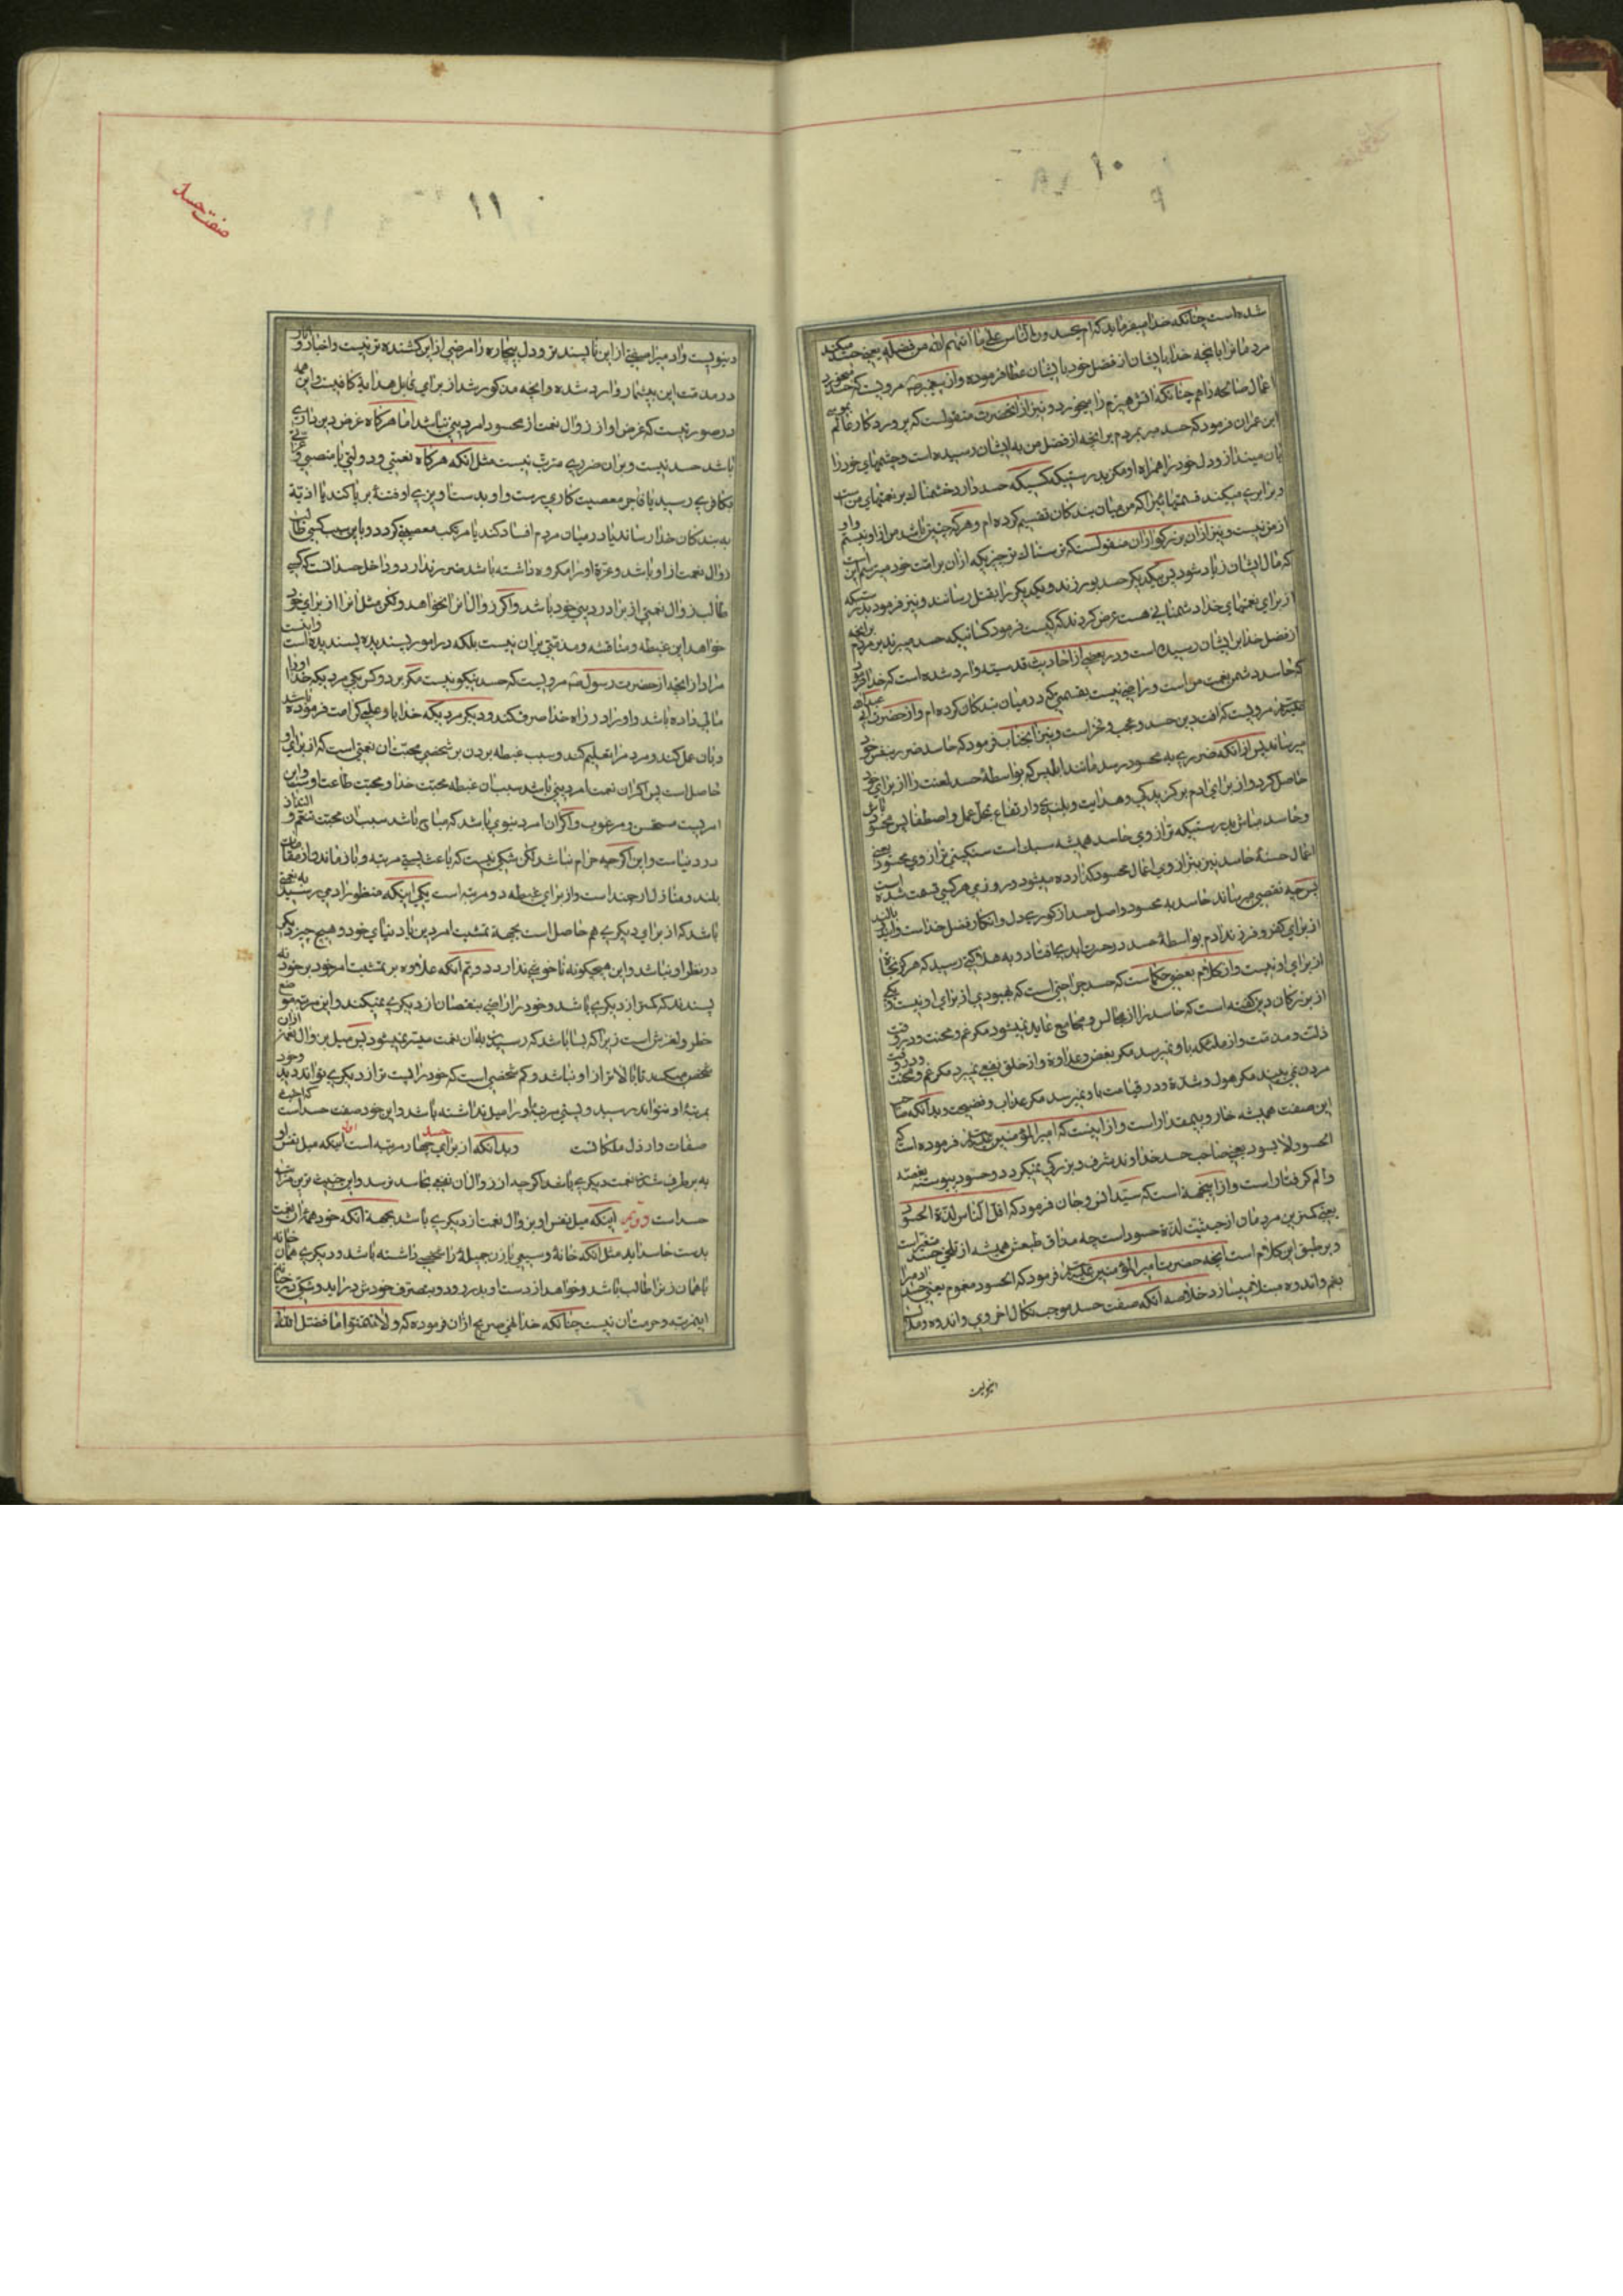 ۱۰
شده است چنانکه خدا میفرماید که ام یحسدون الناس علی ما اتیهم الله من فضله یعنی حسد میکنند
مردمانرا با انچه خدا بایشان از فضل خود بایشان عطا فرموده و از پیغمبر ص مرویست که حسد میخورد
اعمال صالحه را هم چنانکه اتش هیزم را میخورد و نیز از انحضرت منقولست که پروردکار عالم بموسی
ابن عمران فرمود که حسد مبر بمردم بر انچه از فضل من به ایشان رسیده است و چشمهای خود را
بان مینداز و دل خود را همراه او مکن بدرستیکه کسیکه حسد دارد خشمناک بر نعمتهای من است
و برابری میکند قسمتهائیرا که من میان بندکان تقسیم کرده ام و هر که چنین باشد من از او نیستم و او
از من نیست و نیز از ان بزرکوار ان منقولست که ترسناک تر چیزیکه از ان بر امت خود میترسم این است
که مال ایشان زیاد شود پس بیکدیکر حسد بورزند و یکدیکر را بقتل رسانند و نیز فرمود بدرستیکه
از برای نعمتهای خدا دشمنانی هست عرض کردند که کیست فرمود کسانیکه حسد میبرند بر مردم بر انچه
از فضل خدا بر ایشان رسیده است و در بعضی از احادیث قدسیه وارد شده است که خدا فرمود
که حاسد دشمن نعمت من است و راضی نیست بقسمتی که در میان بندکان کرده ام و از حضرت ابی عبدالله
علیه السلام مرویست که افت دین حسد و عجب و فخر است و نیز انجناب فرمود که حاسد ضرر بنفس خود
میرساند پیش از انکه ضرری به محسود رسد مانند ابلیس که بواسطهٔ حسد لعنت را از برای خود
حاصل کرد و از برای ادم برکزیدکی و هدایت و بلندی و ارتفاع بمحل عمل و اصطفا پس محسود باش
و حاسد مباش بدرستیکه ترازوی حاسد همیشه سبک است بسنکینی ترازوی محسود یعنی
اعمال حسنهٔ حاسد نیز بترازوی اعمال محسود کذارده میشود و روزی هر کسی قسمت شده است
پس چه نقصی میرساند حاسد به محسود و اصل حسد از کوری دل و انکار فضل خدا است و این دو بالند
از برای کفر و فرزند ادم بواسطهٔ حسد در حسرت ابدی افتاد و به هلاکتی رسید که هرکز نجات
از برای او نیست و از کلام بعضی حکماست که حسد جراحتی است که بهبودی از برای او نیست و یکی
از بزرکان دین کفته است که حاسد را از مجالس و مجامع عاید نمیشود مکر غم و محنت و در وقت
ذلت و مذمت و از ملئکه باو نمیرسد مکر بغض و عداوة و از خلق نفعی نمیبرد مکر غم و محنت و در وقت
مردن نمی بیند مکر هول و شدة و در قیامت باو نمیرسد مکر عذاب و فضیحت و بدانکه صاحب
این صفت همیشه خار و بیمقدار است و از اینست که امیرالمؤمنین علیه السلام فرموده است که
الحسود لا یسود یعنی صاحب حسد خداوند شرف و بزرکی نمیکردد و حسود پیوسته بغصه
و الم کرفتار است و از اینجهة است که سید انس و جان فرمود که اقل الناس لذة الحسود
یعنی کمترین مردمان از حیثیت لذة حسود است چه مذاق طبعش همیشه از تلخی حسد متغیر است
و بر طبق این کلام است انچه حضرت امیرالمؤمنین علیه السلام فرمود که الحسود مغموم یعنی حسد ادمیرا
بغم و اندوه مبتلا میسازد خلاصه انکه صفت حسد موجب نکال اخروی و اندوه و ملال
صفت حسد
۱۱
دنیویست و ادمیرا صفتی از این ناپسندتر و دل بیچاره را مرضی از این کشنده تر نیست و اخبار و اثار
در مذمت این بیشمار وارد شده و انچه مذکور شد از برای قابل هدایة کافیست و این همه
در صورتیست که غرض او از زوال نعمت از محسود امر دینی نباشد اما هرکاه غرض دین داری
باشد حسد نیست و بران ضرری مترتب نیست مثل انکه هرکاه نعمتی و دولتی یا منصبی و عزتی
بکافری رسید یا فاجر معصیت کاری است و او بدستاویزی او فتنه بر پا کند یا اذیة
به بندکان خدا رساند یا در میان مردم افساد کند یا مرتکب معصیتی کردد و باین سبب کسی طالب
زوال نعمت از او باشد و عزة او را مکروه داشته باشد ضرر ندارد و داخل حسد انست که کسی
طالب زوال نعمتی از برادر دینی خود باشد و اکر زوال انرا نخواهد ولکن مثل انرا از برای خود
خواهد این غبطه و منافسه و مذمتی بران نیست بلکه در امور پسندیده پسندیده است و اینست
مراد از انچه از حضرت رسول ص مرویست که حسد نیکو نیست مکر بر دو کس یکی مردیکه خدا او را
مالی داده باشد و او را در راه خدا صرف کند و دیکر مردیکه خدا باو علمی کرامت فرموده باشد
و بان عمل کند و مردم را تعلیم کند و سبب غبطه بردن بر شخصی محبت ان نعمتی است که از برای او
حاصل است پس اکر ان نعمت امر دینی باشد سبب ان غبطه محبت خدا و محبت طاعت اوست و این
امریست مستحسن و مرغوب و اکر ان امر دنیوی باشد که مباح باشد سبب ان محبت تنعم و التذاذ
در دنیاست و این اکرچه حرام نباشد لکن شکی نیست که باعث پستی مرتبه و باز ماندن از مقامات
بلند و منازل ارجمند است و از برای غبطه دو مرتبه است یکی اینکه منظور ادمی رسیدن به نعمتی
باشد که از برای دیکری هم حاصل است بجهة تمشیت امر دین یا دنیای خود و هیچ چیز دیکر
در نظر او نباشد و این هیچکونه ناخوشی ندارد دویم انکه علاوه بر تمشیت امر خود بر خود نه
پسندد که کمتر از دیکری باشد و خود را راضی بنقصان از دیکری نمیکند و این مرتبه موضع
خطر و لغزش است زیرا که بسا باشد که رسیدن بان نعمت میسر نمیشود پس میل بزوال نعمت از ان
شخص میکند تا بالاتر از او نباشد و کم شخصی است که خود را پست تر از دیکری تواند دید و خود
بمرتبهٔ او نتواند رسید و پستی مرتبه او را میل نداشته باشد و این خود صفت حسد است که اخبث
صفات و ارذل ملکاتست و بدانکه از برای حسد چهار مرتبه است اول اینکه میل نفس او
به برطرف شدن نعمت دیکری باشد اکرچه از زوال ان نفعی بحاسد نرسد و این خبیث ترین مراتب
حسد است دویم اینکه میل نفس او بزوال نعمت از دیکری باشد بجهة انکه خود همان نعمت
بدست حاسد اید مثل انکه خانهٔ وسیعی یا زن جمیلهٔ را شخصی داشته باشد و دیکری همان خانه
یا همان زنرا طالب باشد و خواهد از دست او بدر رود و بتصرف خودش در اید و شکی در خباثت
این مرتبه و حرمت ان نیست چنانکه خدا نهی صریح از ان فرموده که و لا تتمنوا ما فضل الله